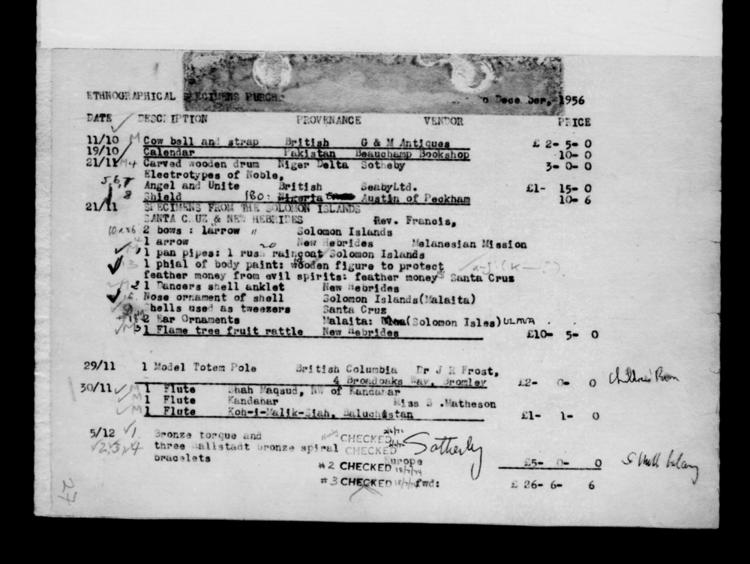 ETHNOGRAPHICAL SPECIMENS PURCH. December, 1956
DATE DESCRIPTION PROVENANCE VENDOR PRICE
11/10 M Cow bell and strap British G & M Antiques £ 2- 5- 0
19/10 Calendar Pakistan Beauchamp Bookshop 10- 0
21/11 M4 Carved wooden drum Niger Delta Sotheby 3- 0- 0
Electrotypes of Noble,
5,6,7 Angel and Unite British SeabyLtd. £1- 15- 0
8 Shield IBO: Nigeria Austin of Peckham 10- 6
21/11 SPECIMENS FROM THE SOLOMON ISLANDS
SANTA CRUZ & NEW HEBRIDES Rev. Francis,
2 bows : 1arrow " Solomon Islands
1 arrow 20 New Hebrides Melanesian Mission
1 pan pipes: 1 rush raincoat Solomon Islands
1 phial of body paint: wooden figure to protect
feather money from evil spirits: feather money Santa Cruz
2 1 Dancers shell anklet New Hebrides
Nose ornament of shell Solomon Islands(Malaita)
9 Shells used as tweezers Santa Cruz
2 Ear Ornaments Malaita: (Solomon Isles) ULAWA
M 1 Flame tree fruit rattle New Hebrides £10- 5- 0
29/11 1 Model Totem Pole British Columbia Dr J R Frost,
4 Broadoaks Way, Bromley £2- 0- 0
30/11 M 1 Flute Shah Maqsud, NW of Kandahar
M 1 Flute Kandahar Miss S .Matheson
M 1 Flute Koh-i-Malik-Siah, Baluchistan £1- 1- 0
5/12 1 Bronze torque and CHECKED
2,3,4 three Hallstadt bronze spiral CHECKED Sotheby
bracelets Europe £5- 0- 0
#2 CHECKED
#3 CHECKED fwd: £ 26- 6- 6
27